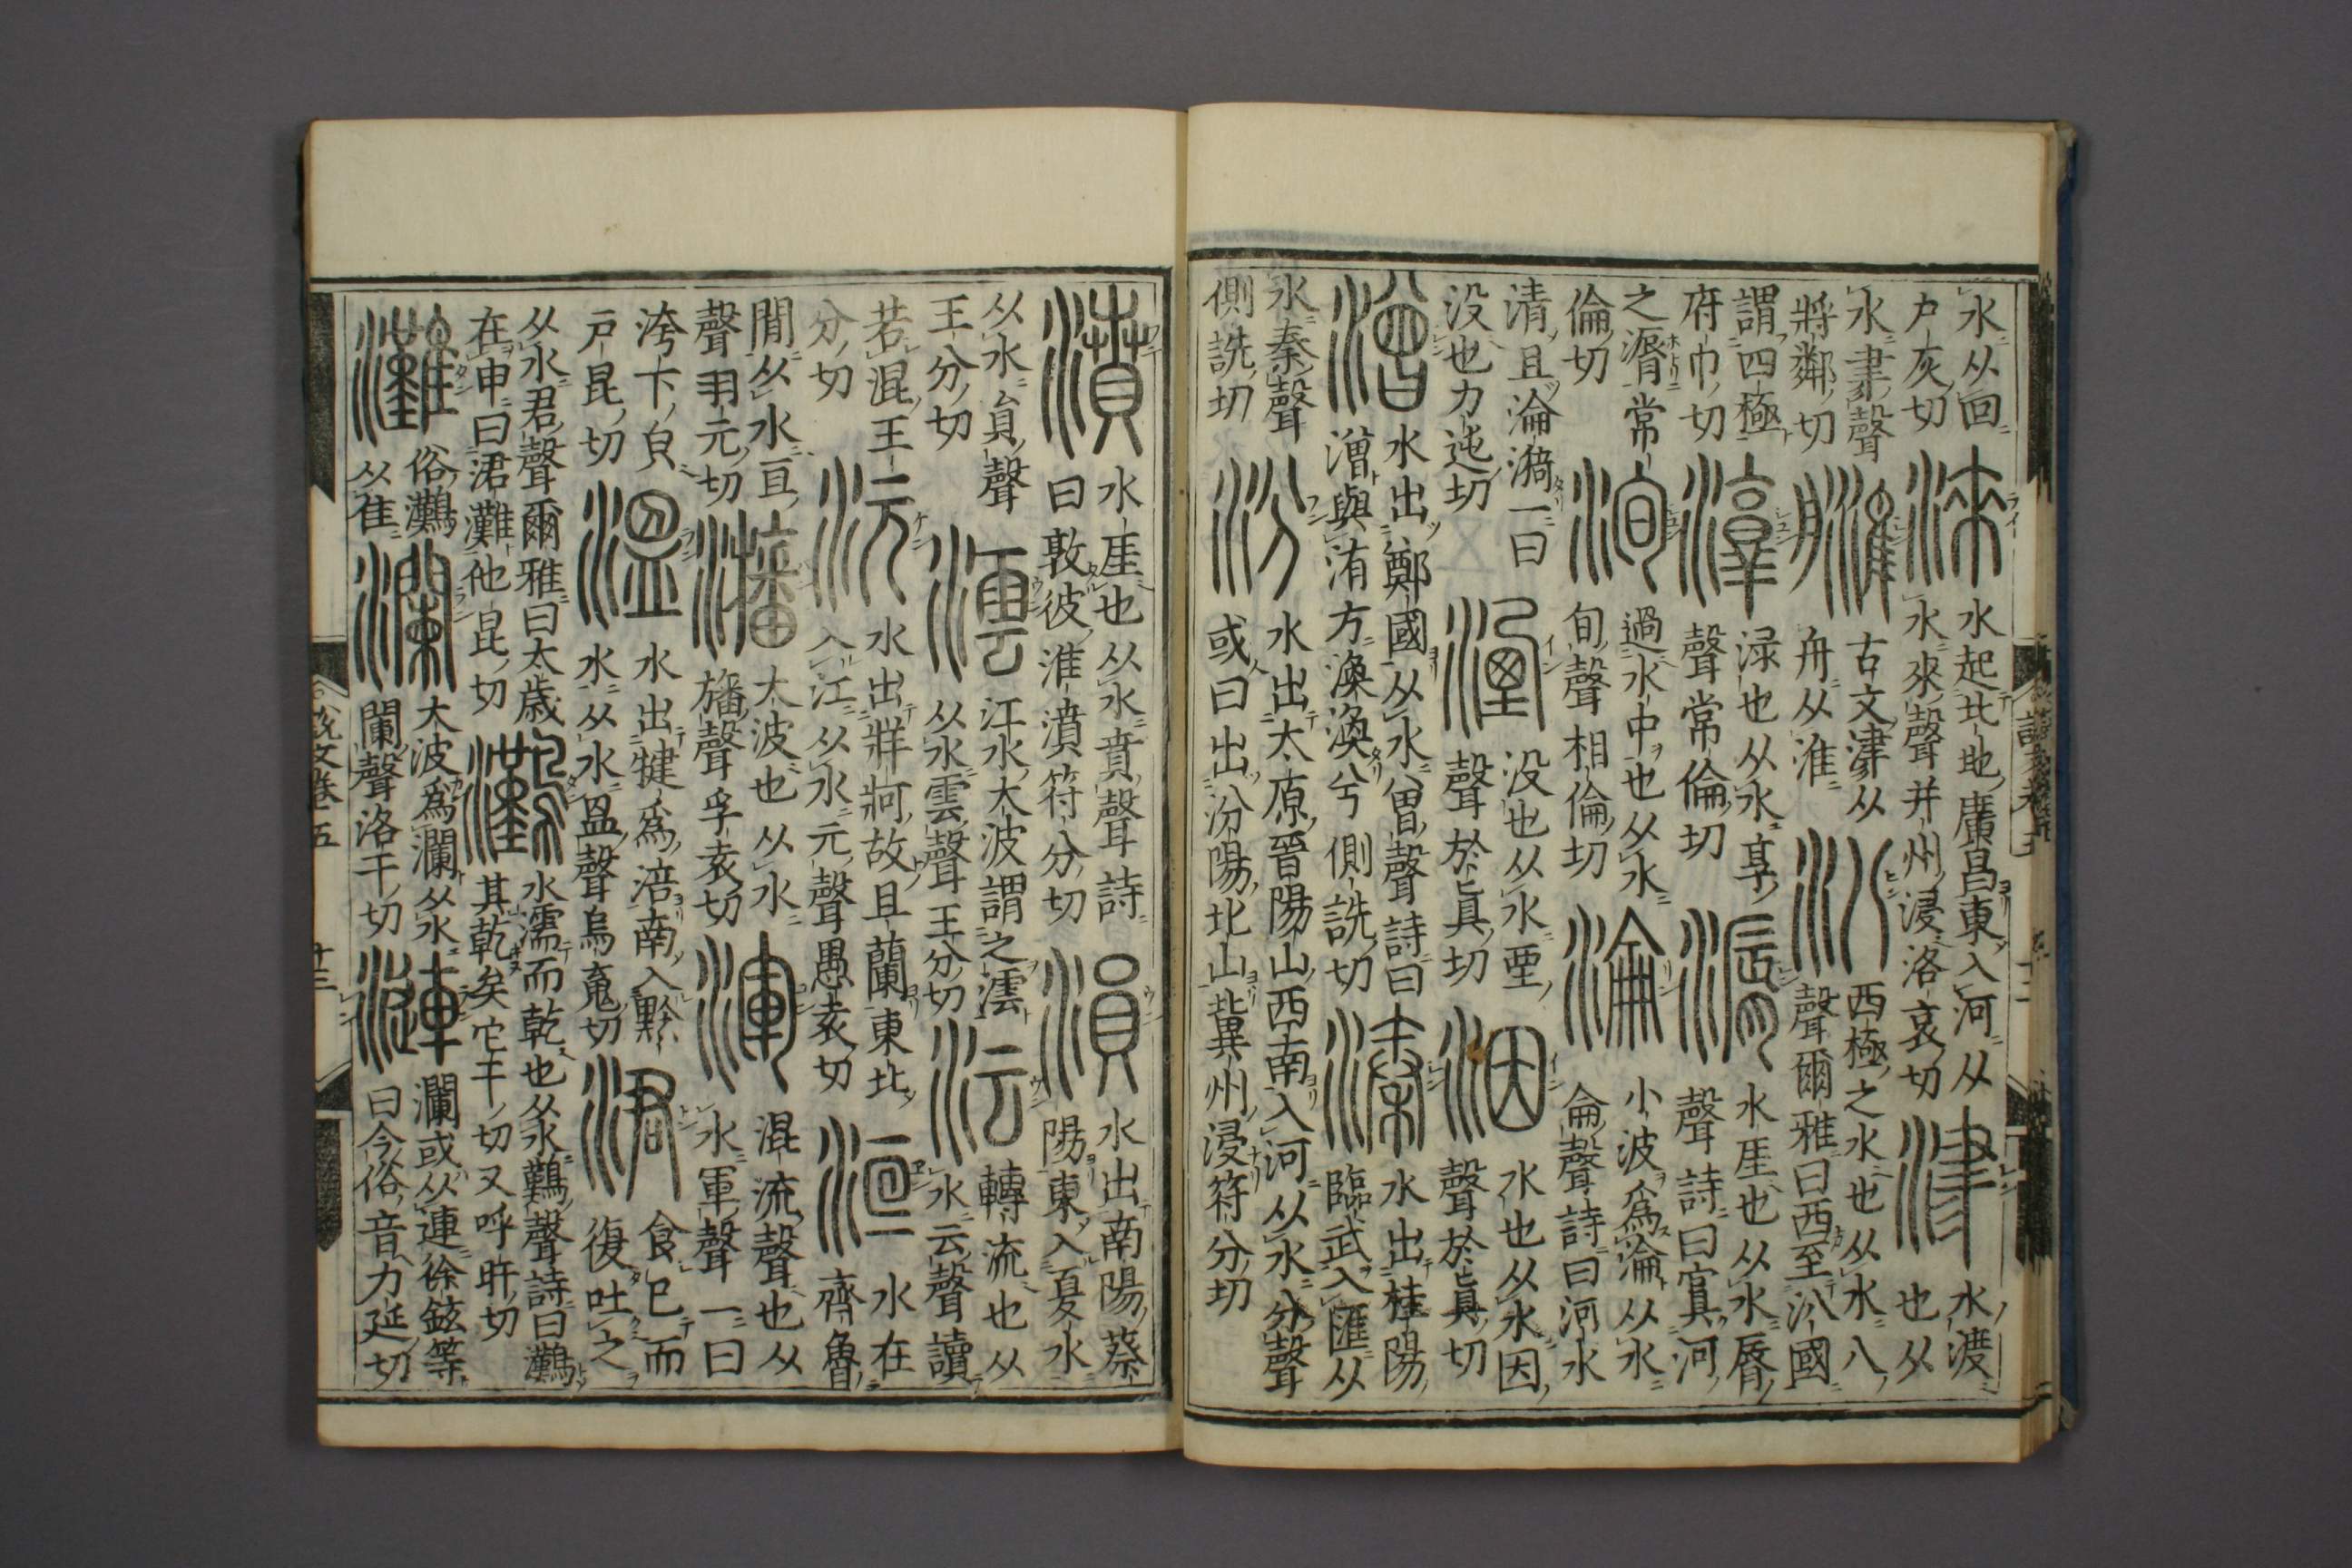 水从回
戶灰切 淶 水起北地廣昌東入河从
水來聲并州浸洛哀切 津 水渡
也从
水𦘔聲
將鄰切 古文津从
舟从淮 汃 西極之水也从水八
聲爾雅曰西至汃國
謂四極
府巾切 淳 淥也从水𦎫
聲常倫切 漘 水厓也从水脣
聲詩曰寘河
之漘常
倫切 洵 過水中也从水
旬聲相倫切 淪 小波爲淪从水
侖聲詩曰河水
清且淪漪一曰
没也力迍切 湮 没也从水垔
聲於眞切 洇 水也从水因
聲於眞切
潧 水出鄭國从水曾聲詩曰
潧與洧方渙渙兮側詵切 溱 水出桂陽
臨武入匯从
水秦聲
側詵切 汾 水出太原晉陽山西南入河从水分聲
或曰出汾陽北山冀州浸符分切
濆 水厓也从水賁聲詩
曰敦彼淮濆符分切 溳 水出南陽蔡
陽東入夏水
从水員聲
王分切 澐 江水大波謂之澐
从水雲聲王分切 沄 轉流也从
水云聲讀
若混王
分切 沅 水出牂牁故且蘭東北
入江从水元聲愚袁切 洹 水在
齊魯
閒从水亘
聲羽元切 㶗 大波也从水
旛聲孚袁切 渾 混流聲也从
水軍聲一曰
洿下皃
戶昆切 溫 水出犍爲涪南入黔
水从水𥁕聲烏䰟切 涒 食已而
復吐之
从水君聲爾雅曰太歲
在申曰涒灘他昆切 灘 水濡而乾也从水鸛聲詩曰灘
其乾矣它干切又呼旰切
灘 俗灘
从隹 瀾 大波爲瀾从水
闌聲洛干切 漣 瀾或从連徐鉉等
曰今俗音力延切
說文卷五 十三